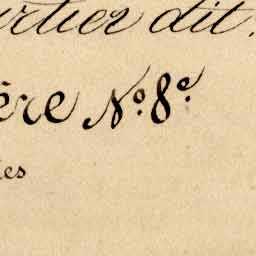 rtier dit.
ère N.º 8.e
es